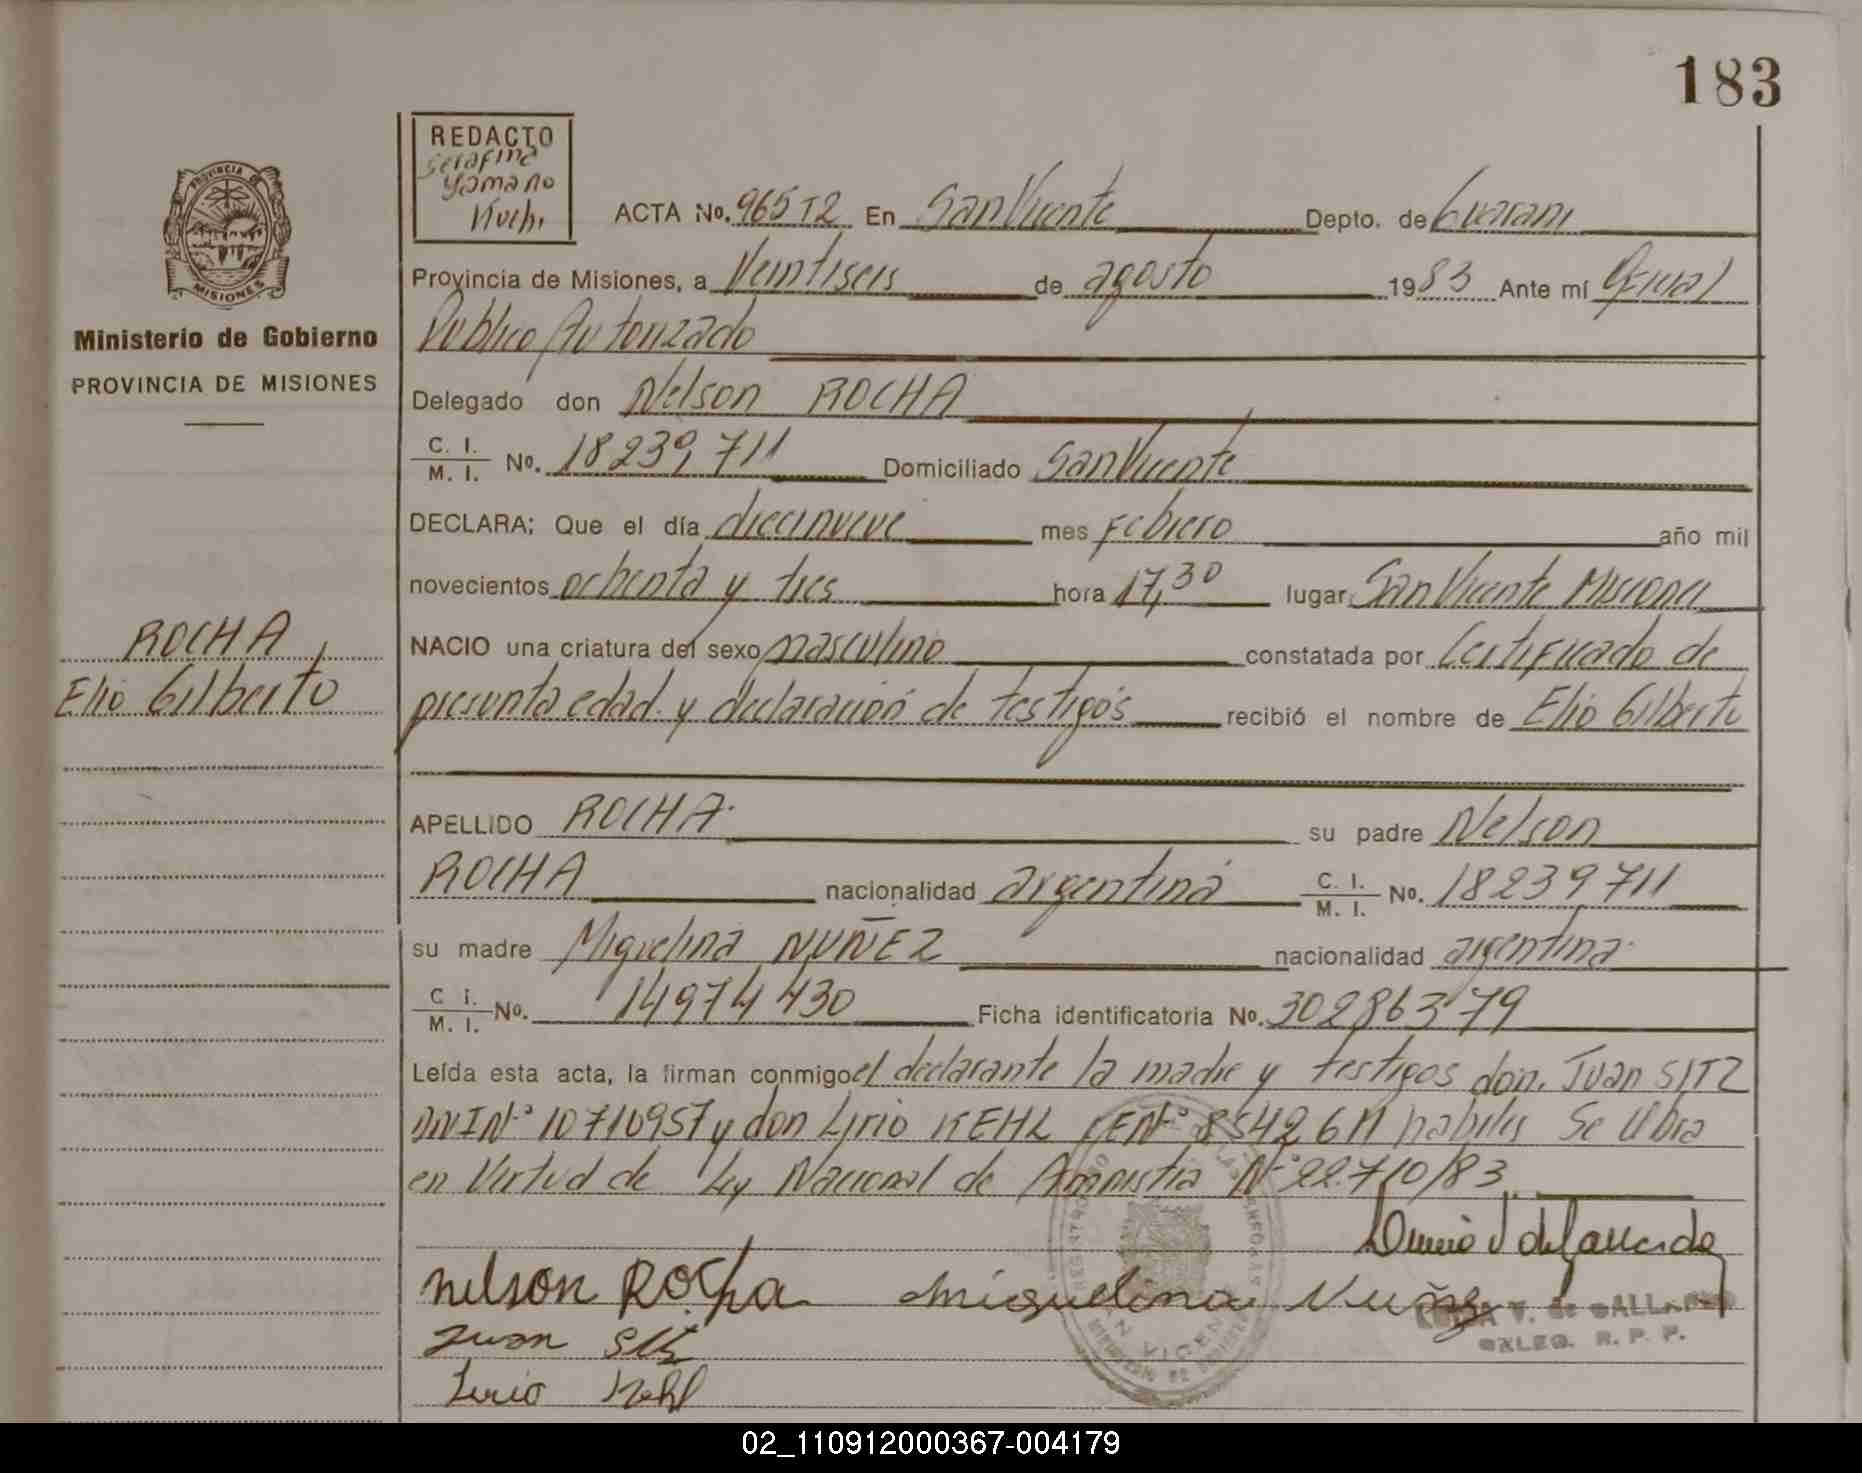 183
REDACTO
Serafina
Yamano
Kuch.
PROVINCIA DE
MISIONES
ACTA No. 965 T2 En San Vicente Depto. de Guarani
Provincia de Misiones, a Veintiseis de agosto 1983 Ante mí Oficial
Ministerio de Gobierno
PROVINCIA DE MISIONES
Publico Autorizado
Delegado don Nelson ROCHA
C. I. / M. I. No. 18239711 Domiciliado San Vicente
DECLARA; Que el día diecinueve mes Febrero año mil
novecientos ochenta y tres hora 17,30 lugar San Vicente Misiones
ROCHA,
Elio Gilberto
NACIO una criatura del sexo masculino constatada por Certificado de
presunta edad y declaración de testigos recibió el nombre de Elio Gilberto
APELLIDO ROCHA su padre Nelson
ROCHA nacionalidad argentina C. I. / M. I. No. 18239711
su madre Miguelina NUÑEZ nacionalidad argentina
C I. / M. I. No. 14974430 Ficha identificatoria No. 30286379
Leída esta acta, la firman conmigo el declarante la madre y testigos don. Juan SITZ
DNI Nº 10710957 y don Lirio KEHL Nº 8542611 habiles Se libra
en Virtud de Ley Nacional de Amnistia Nº 22.710/83
nelson Rocha miguelina Nuñez
V. de GALLARDO
DELEG. R. P. P.
Juan Sitz
Lirio Kehl
02_110912000367-004179